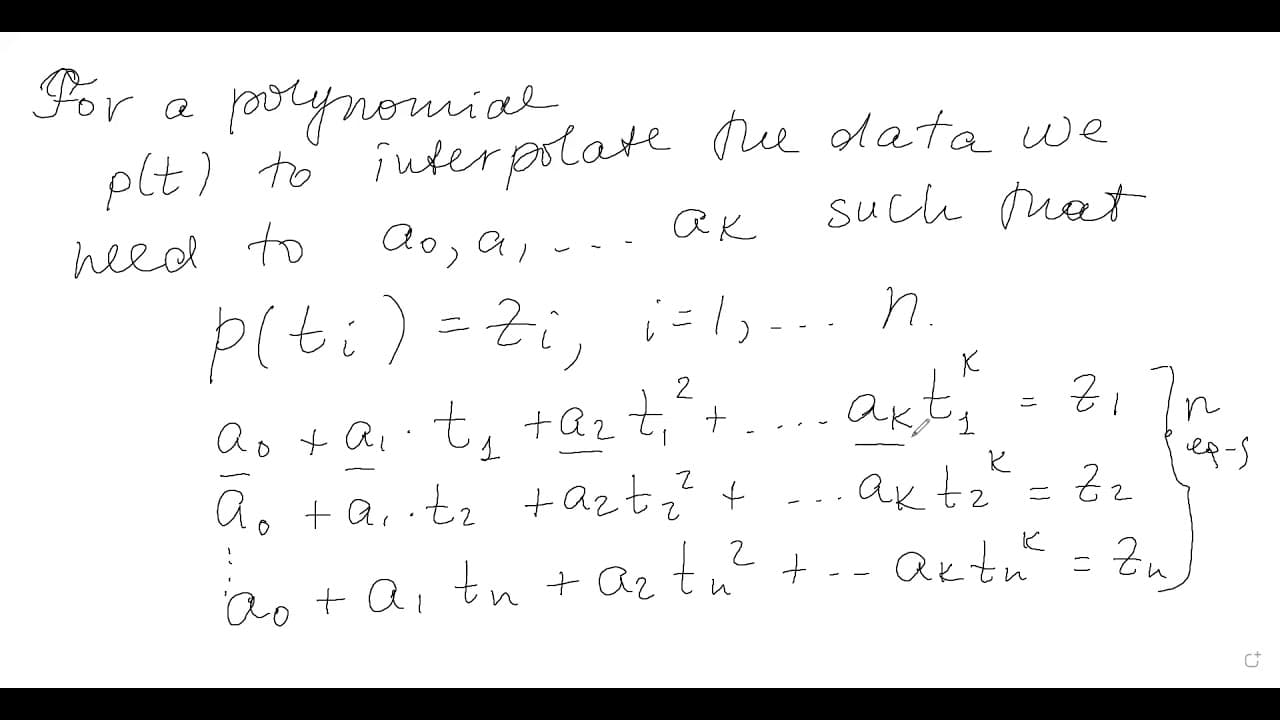 For a polynomial
p(t) to interpolate the data we
need to a₀, a₁ --- aₖ such that
p(tᵢ) = zᵢ, i=1, --- n.
a₀ + a₁·t₁ + a₂t₁² + ---- aₖt₁ᴷ = z₁
a₀ + a₁·t₂ + a₂t₂² + --- aₖt₂ᴷ = z₂
⋮
a₀ + a₁ tₙ + a₂tₙ² + --- aₖtₙᴷ = zₙ
n
eq-s